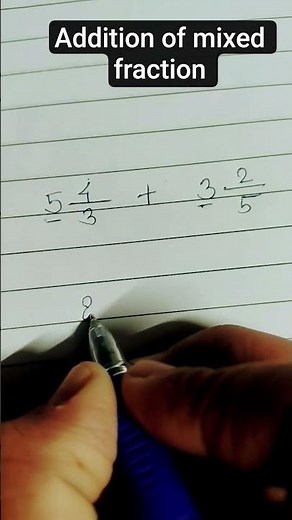 Addition of mixed
fraction
5 4/3 + 3 2/5
8